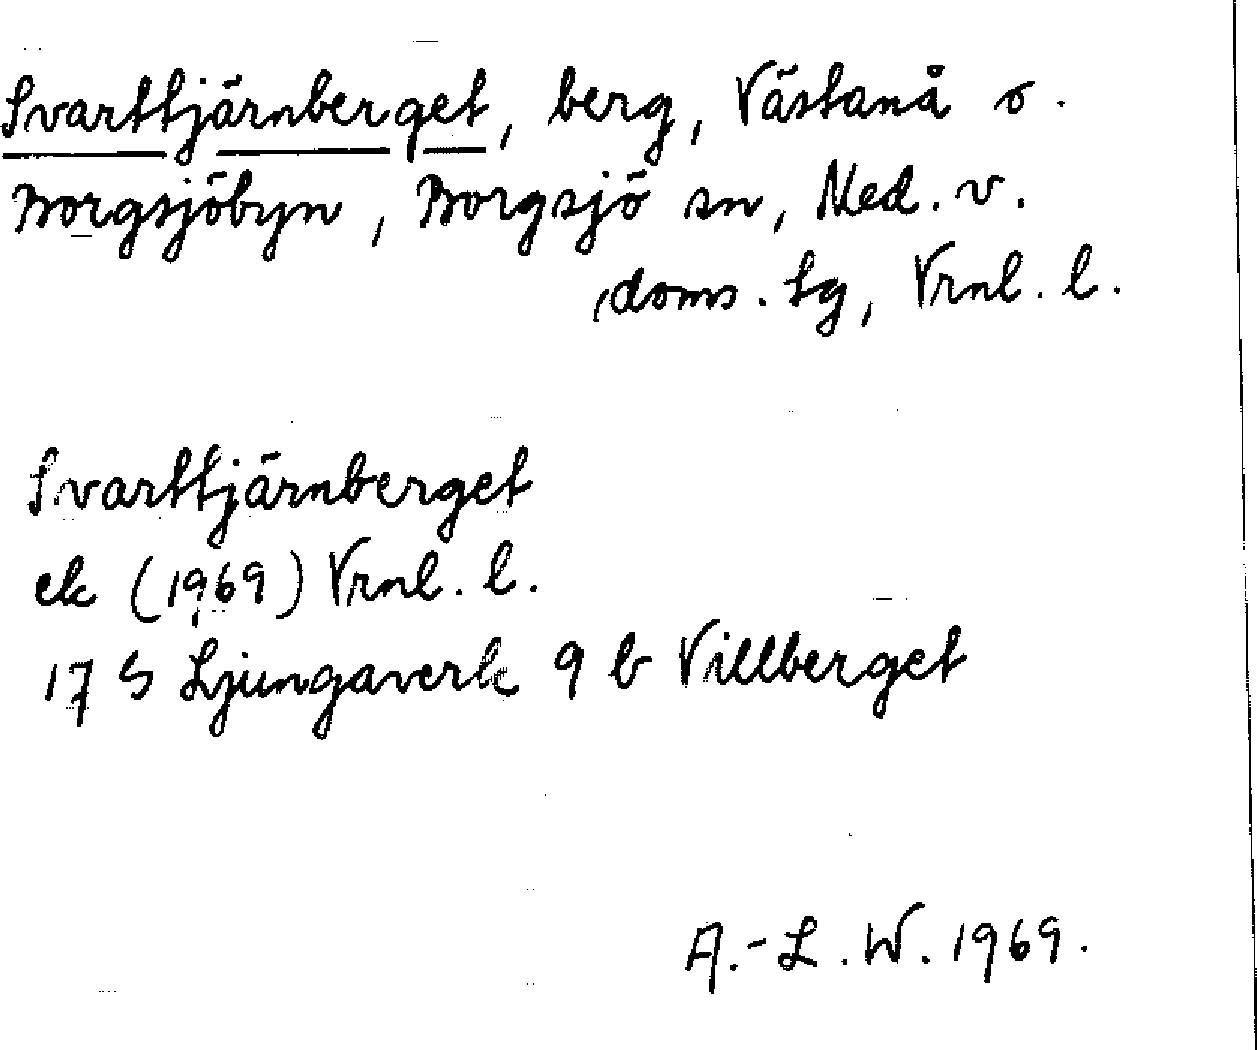 Svarttjärnberget, berg, Västanå o.
Borgsjöbyn, Borgsjö sn, Med. v.
doms. tg, Vrnl. l.
Svarttjärnberget
ek (1969) Vrnl. l.
17 G Ljungaverk 9 b Villberget
A.-L. W. 1969.